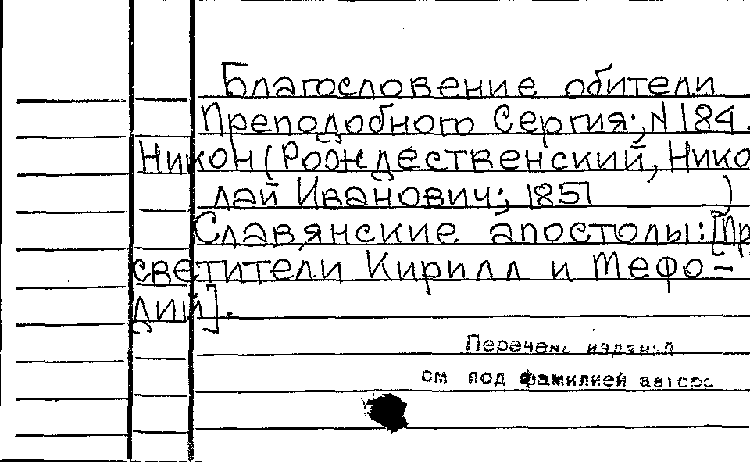 Благословение обители
Преподобного Сергия; N 184.
Никон (Рождественский, Нико
лай Иванович; 1851 )
Славянские апостолы: [Пр
светители Кирилл и Мефо-
дий].
Перечень изданий
см под фамилией автора